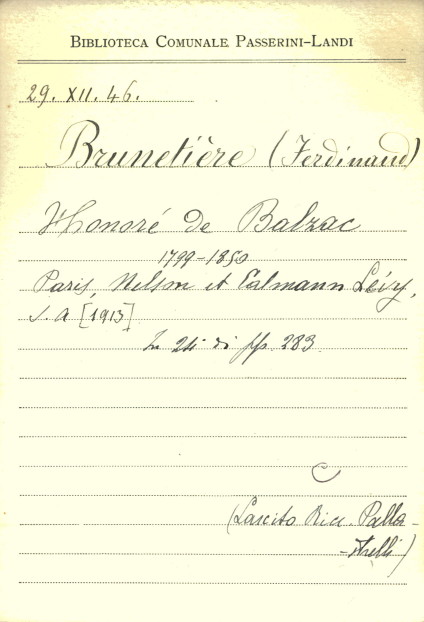 BIBLIOTECA COMUNALE PASSERINI-LANDI
29. XII. 46.
Brunetière (Ferdinand)
Honoré de Balzac
1799-1850
Paris, Nelson et Calmann Lévy,
s. a [1913]
In 24 di pp. 283
C
(Lascito Ricc. Palla-
-strelli)